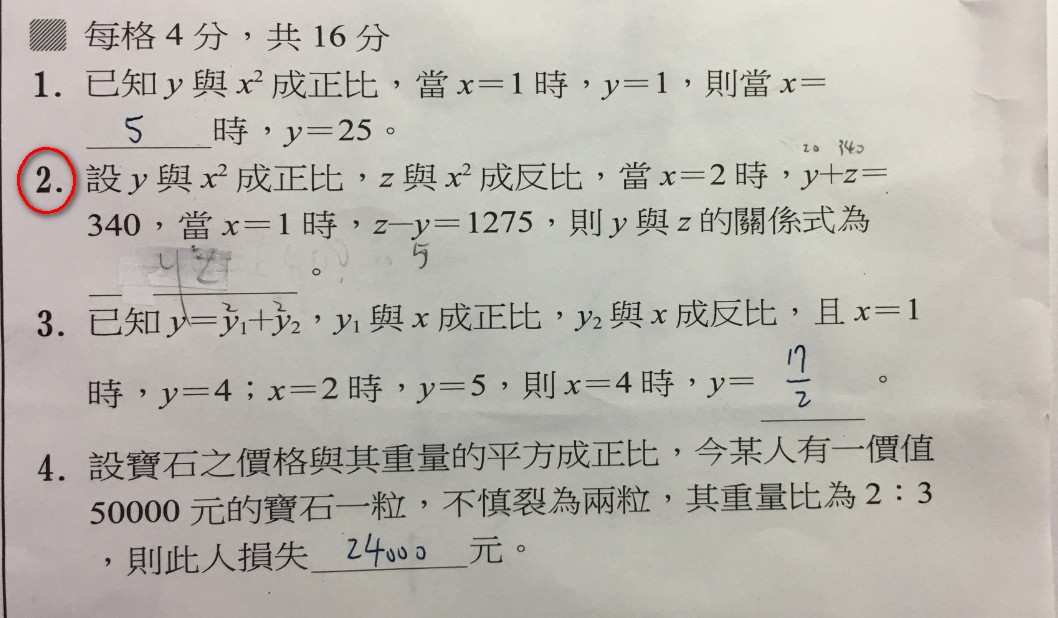 每格 4 分，共 16 分
1. 已知 y 與 x² 成正比，當 x=1 時，y=1，則當 x=
5 時，y=25。
20 340
2. 設 y 與 x² 成正比，z 與 x² 成反比，當 x=2 時，y+z=
340，當 x=1 時，z－y=1275，則 y 與 z 的關係式為
5
yz 。
2 2
3. 已知 y=y₁+y₂，y₁ 與 x 成正比，y₂ 與 x 成反比，且 x=1
時，y=4；x=2 時，y=5，則 x=4 時，y= 17/2 。
4. 設寶石之價格與其重量的平方成正比，今某人有一價值
50000 元的寶石一粒，不慎裂為兩粒，其重量比為 2：3
，則此人損失 24000 元。